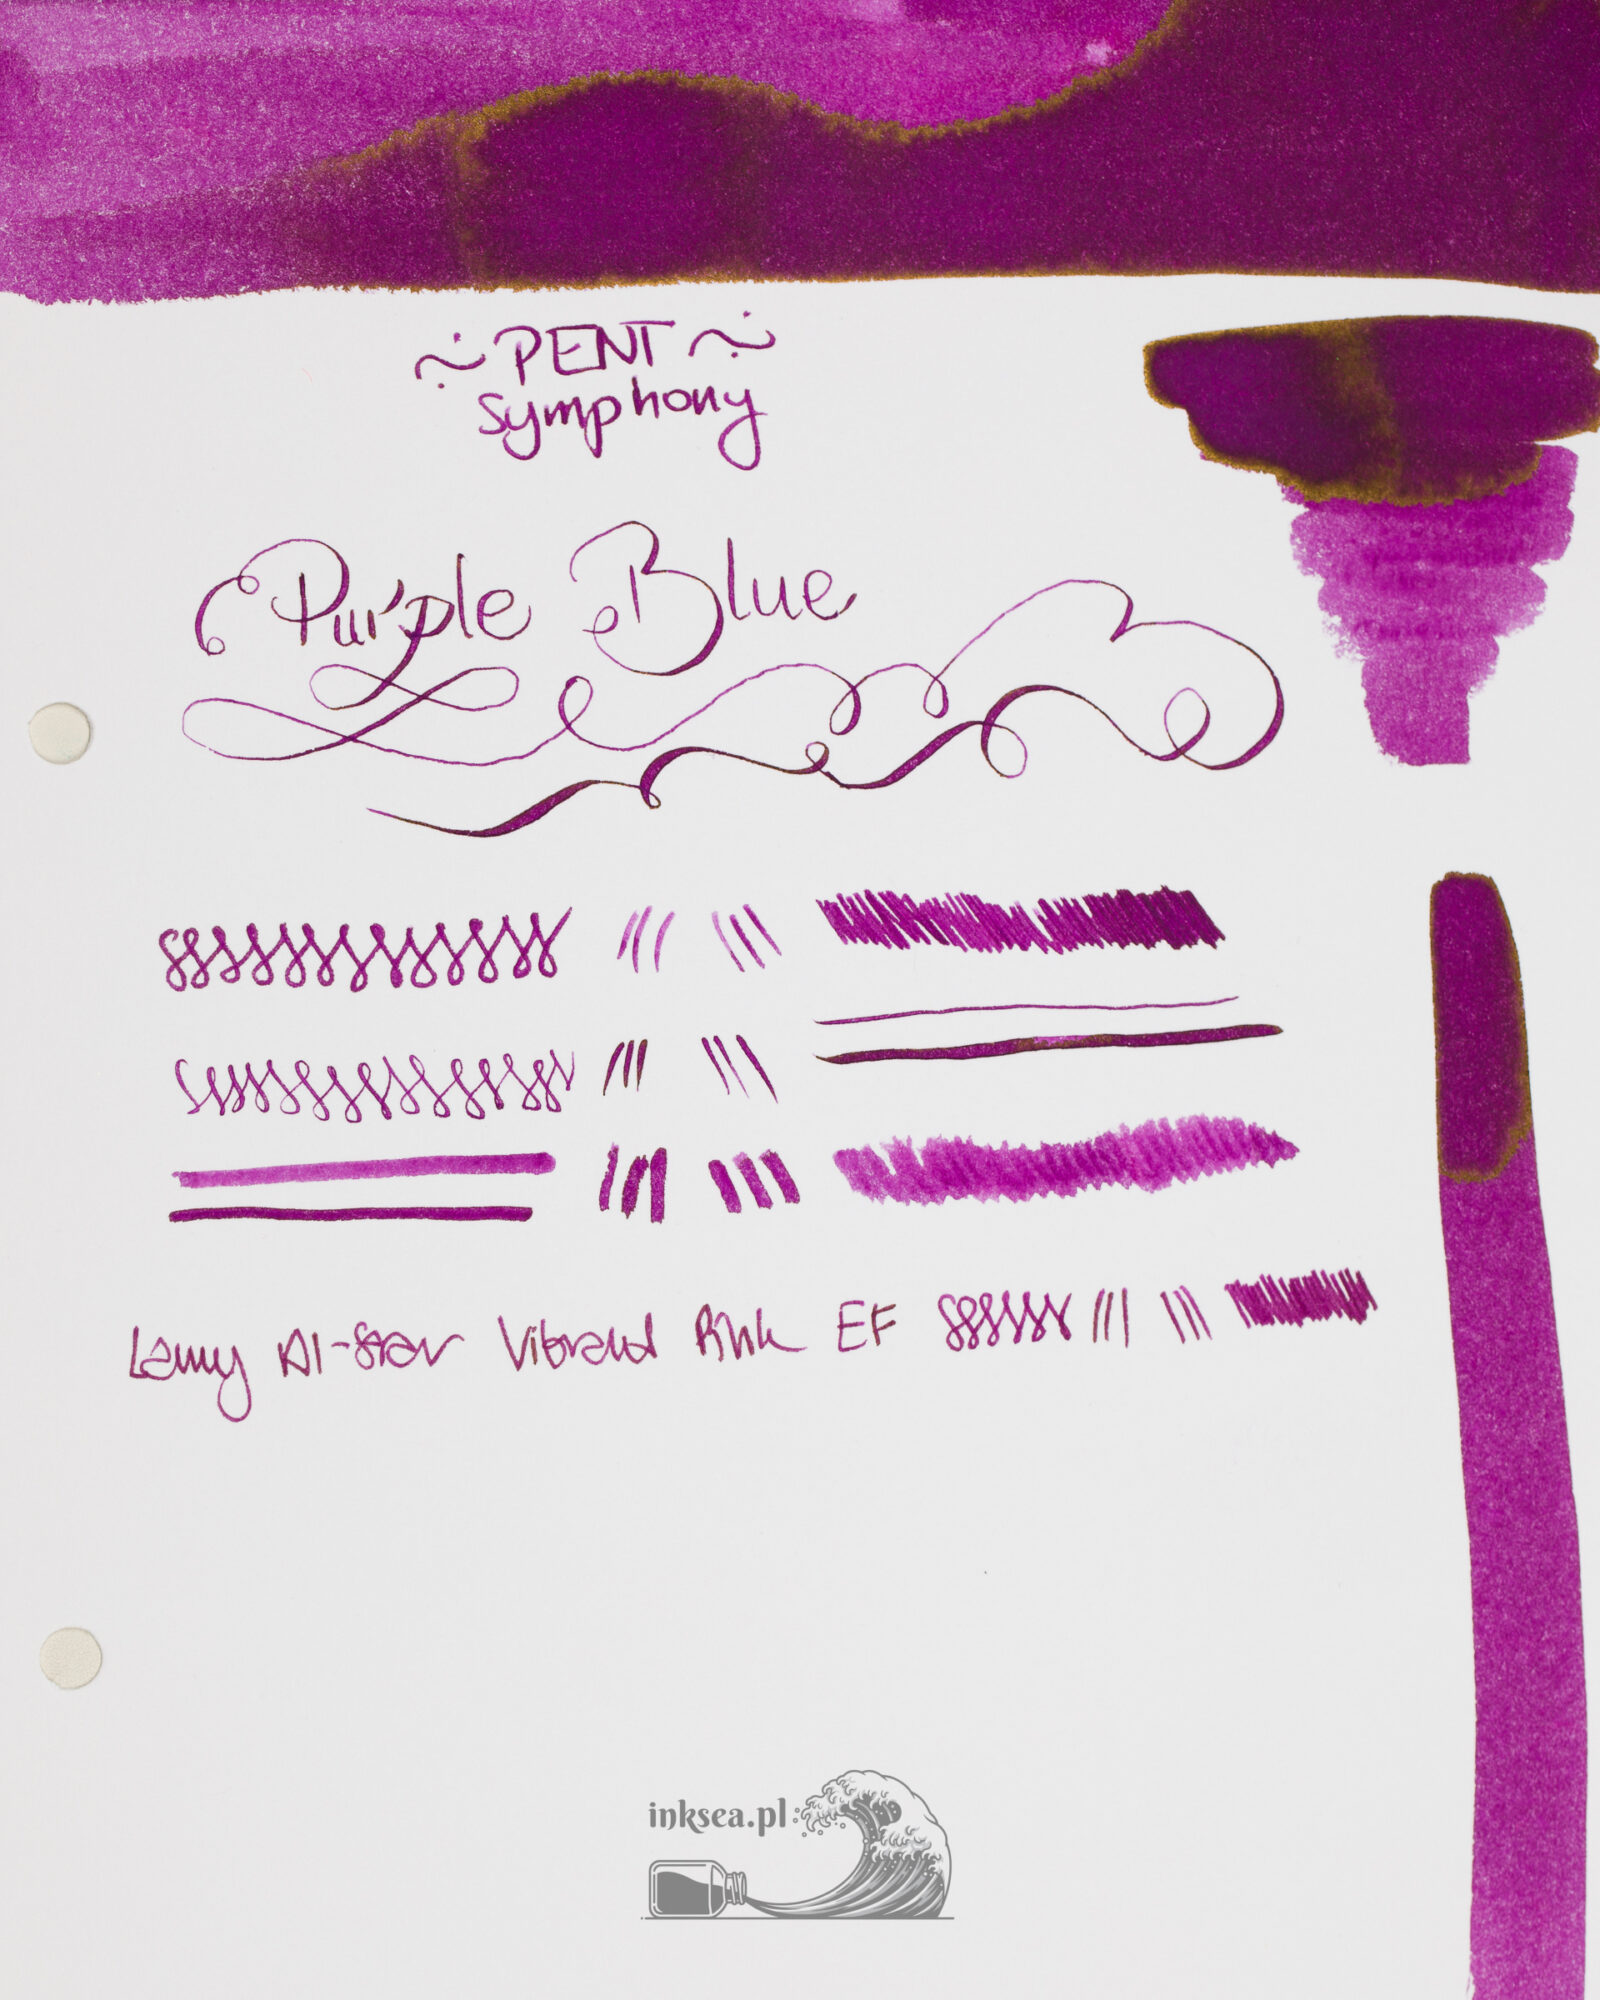 ~ PENT ~
symphony
Purple Blue
Lamy Al-Star Vibrant Pink EF
inksea.pl